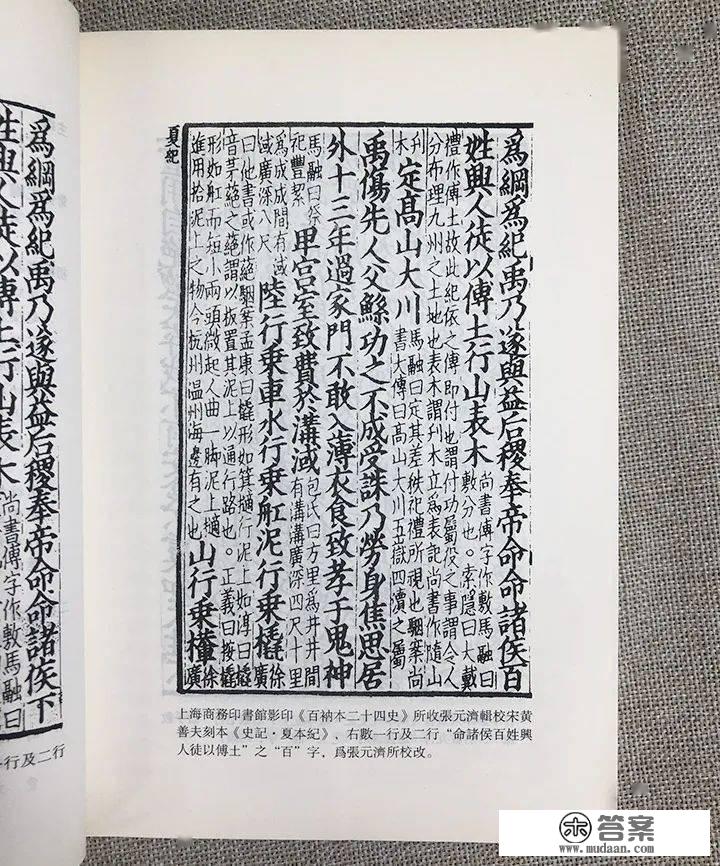 爲綱爲紀禹乃遂與益后稷奉帝命命諸侯百
姓興人徒以傅土行山表木
尚書傅字作敷馬融曰
敷分也。索隱曰大戴
禮作傅土故此紀依之傅即付也謂付功屬役之事謂令人
分布理九州之土地也表木謂刊木立爲表記尚書作隨山
刊
木
定高山大川
馬融曰定其差秩祀禮所視也駰案尚
書大傳曰高山大川五嶽四瀆之屬
禹傷先人父鯀功之不成受誅乃勞身焦思居
外十三年過家門不敢入薄衣食致孝于鬼神
馬融曰祭
祀豐絜
卑宫室致費於溝淢
包氏曰方里爲井井間
有溝溝廣深四尺十里
爲成成間有淢
淢廣深八尺
陸行乘車水行乘舡泥行乘橇
徐
廣
曰他書或作蕝駰案孟康曰橇形如箕擿行泥上如淳曰橇
音茅蕝之蕝謂以板置其泥上以通行路也。正義曰按橇
形如舡而短小兩頭微起人曲一脚泥上擿
進用拾泥上之物今杭州温州海邊有之也
山行乘檋
徐
廣
夏紀
上海商務印書館影印《百衲本二十四史》所收張元濟輯校宋黄
善夫刻本《史記·夏本紀》，右數一行及二行“命諸侯百姓興
人徒以傅土”之“百”字，爲張元濟所校改。
爲綱爲紀禹乃遂與益后稷奉帝命命諸侯下
姓興人徒以傅土行山表木
尚書傅字作敷馬融曰
一行及二行
答案
www.mudaan.com